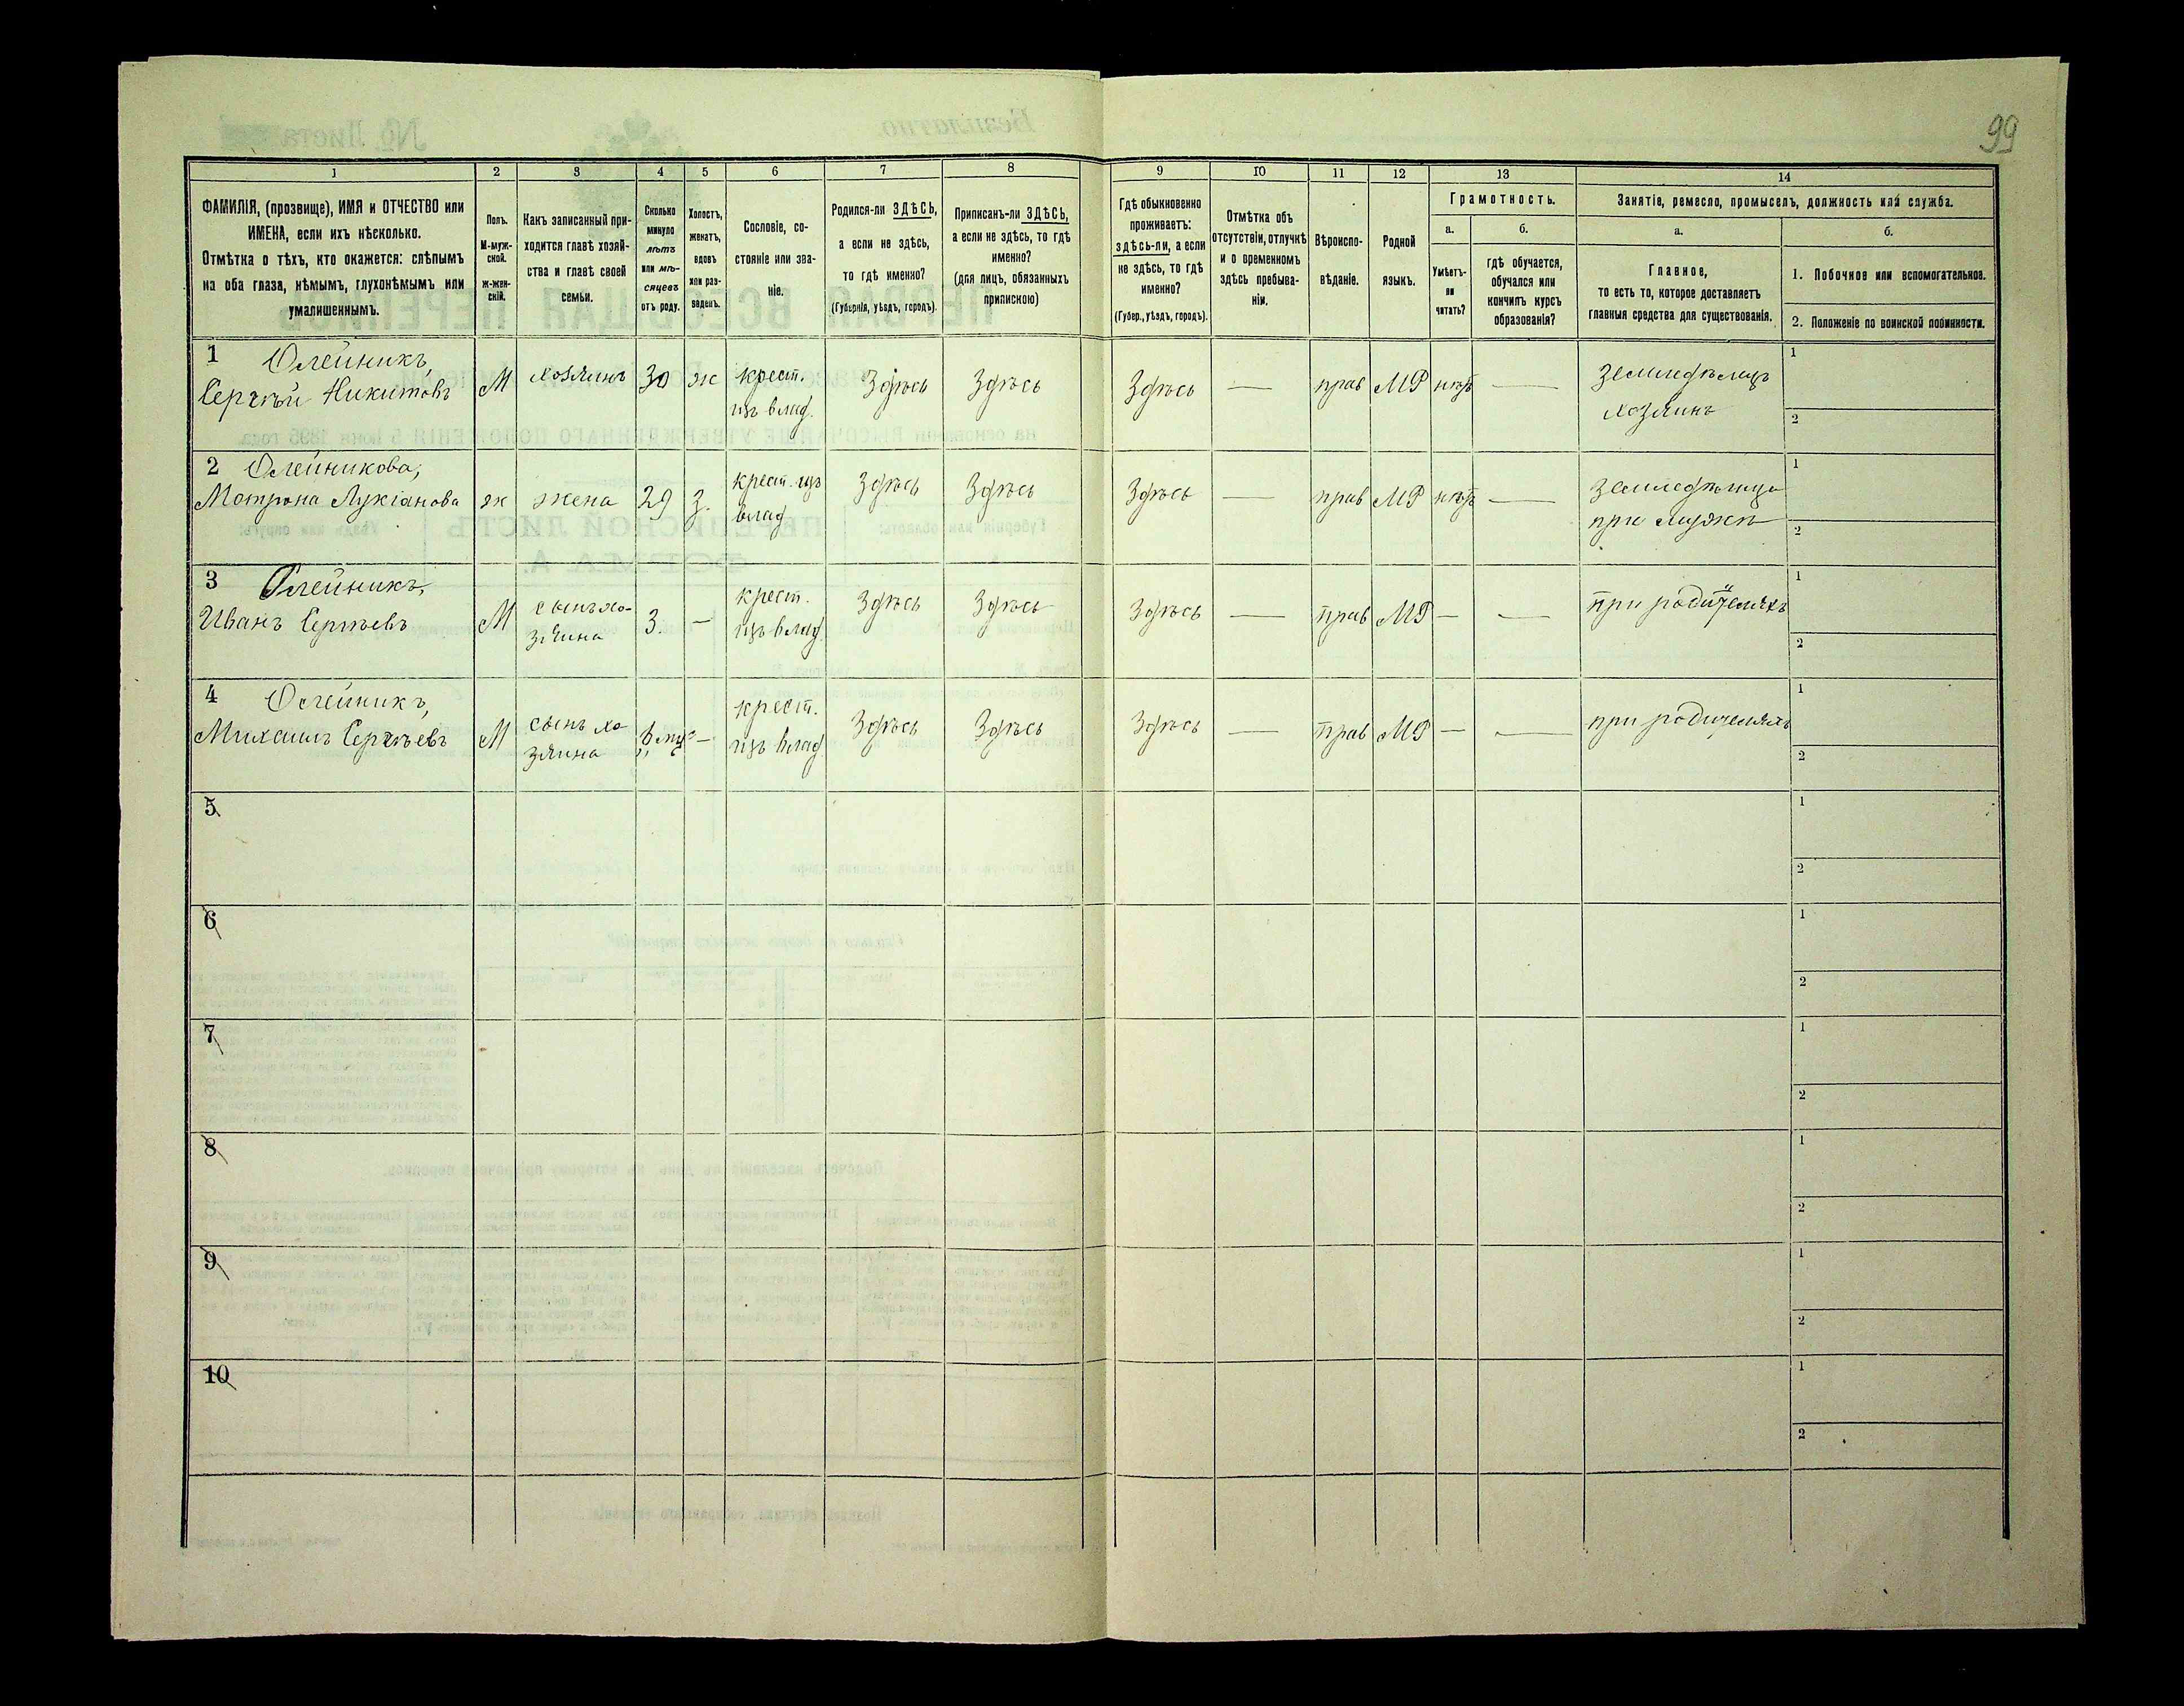 99
1 2 3 4 5 6 7 8 9 10 11 12 13 14
ФАМИЛІЯ, (прозвище), ИМЯ и ОТЧЕСТВО или
ИМЕНА, если ихъ нѣсколько.
Отмѣтка о тѣхъ, кто окажется: слѣпымъ
на оба глаза, нѣмымъ, глухонѣмымъ или
умалишеннымъ.
Полъ.
М-муж-
ской.
ж-жен-
скій.
Какъ записанный при-
ходится главѣ хозяй-
ства и главѣ своей
семьи.
Сколько
минуло
лѣтъ
или мѣ-
сяцевъ
отъ роду.
Холостъ,
женатъ,
вдовъ
или раз-
веденъ.
Сословіе, со-
стояніе или зва-
ніе.
Родился-ли ЗДѢСЬ,
а если не здѣсь,
то гдѣ именно?
(Губернія, уѣздъ, городъ).
Приписанъ-ли ЗДѢСЬ,
а если не здѣсь, то гдѣ
именно?
(для лицъ, обязанныхъ
припискою)
Гдѣ обыкновенно
проживаетъ:
здѣсь-ли, а если
не здѣсь, то гдѣ
именно?
(Губер., уѣздъ, городъ).
Отмѣтка объ
отсутствіи, отлучкѣ
и о временномъ
здѣсь пребыва-
ніи.
Вѣроиспо-
вѣданіе.
Родной
языкъ.
Грамотность.
а.
Умѣетъ-
ли
читать?
б.
гдѣ обучается,
обучался или
кончилъ курсъ
образованія?
Занятіе, ремесло, промыселъ, должность или служба.
а.
Главное,
то есть то, которое доставляетъ
главныя средства для существованія.
б.
1. Побочное или вспомогательное.
2. Положеніе по воинской повинности.
1 Олейникъ,
Сергѣй Никитовъ
М
хозяинъ
30
ж
крест.
изъ влад.
Здѣсь
Здѣсь
Здѣсь
—
прав
МР
нѣтъ
—
Земледѣлецъ
хозяинъ
1
2
2 Олейникова,
Мотрона Лукіанова
ж
жена
29
з.
крест. изъ
влад
Здѣсь
Здѣсь
Здѣсь
—
прав
МР
нѣтъ
—
Земледѣлица
при мужѣ
1
2
3 Олейникъ,
Иванъ Сергѣевъ
М
сынъ хо-
зяина
3.
—
крест.
изъ влад.
Здѣсь
Здѣсь
Здѣсь
—
прав
МР
—
—
при родителяхъ
1
2
4 Олейникъ,
Михаилъ Сергѣевъ
М
сынъ хо
зяина
—
крест.
изъ влад.
Здѣсь
Здѣсь
Здѣсь
—
прав
МР
—
—
при родителяхъ
1
2
5
1
2
6
1
2
7
1
2
8
1
2
9
1
2
10
1
2